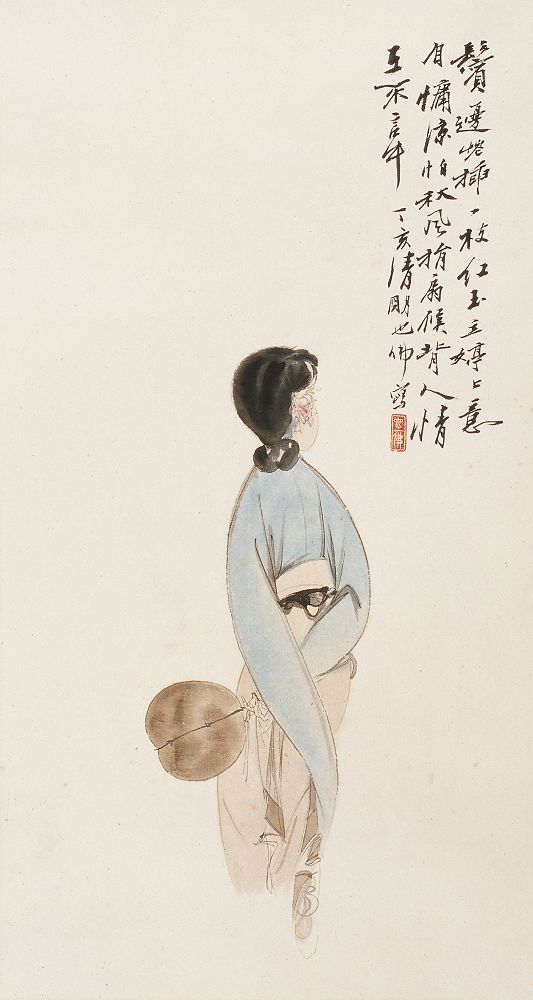 鬢邊悋插一枝紅玉立婷〻意
自慵涼怕秋風捐扇候背人情
立不言中 丁亥清明也佛寫
也佛